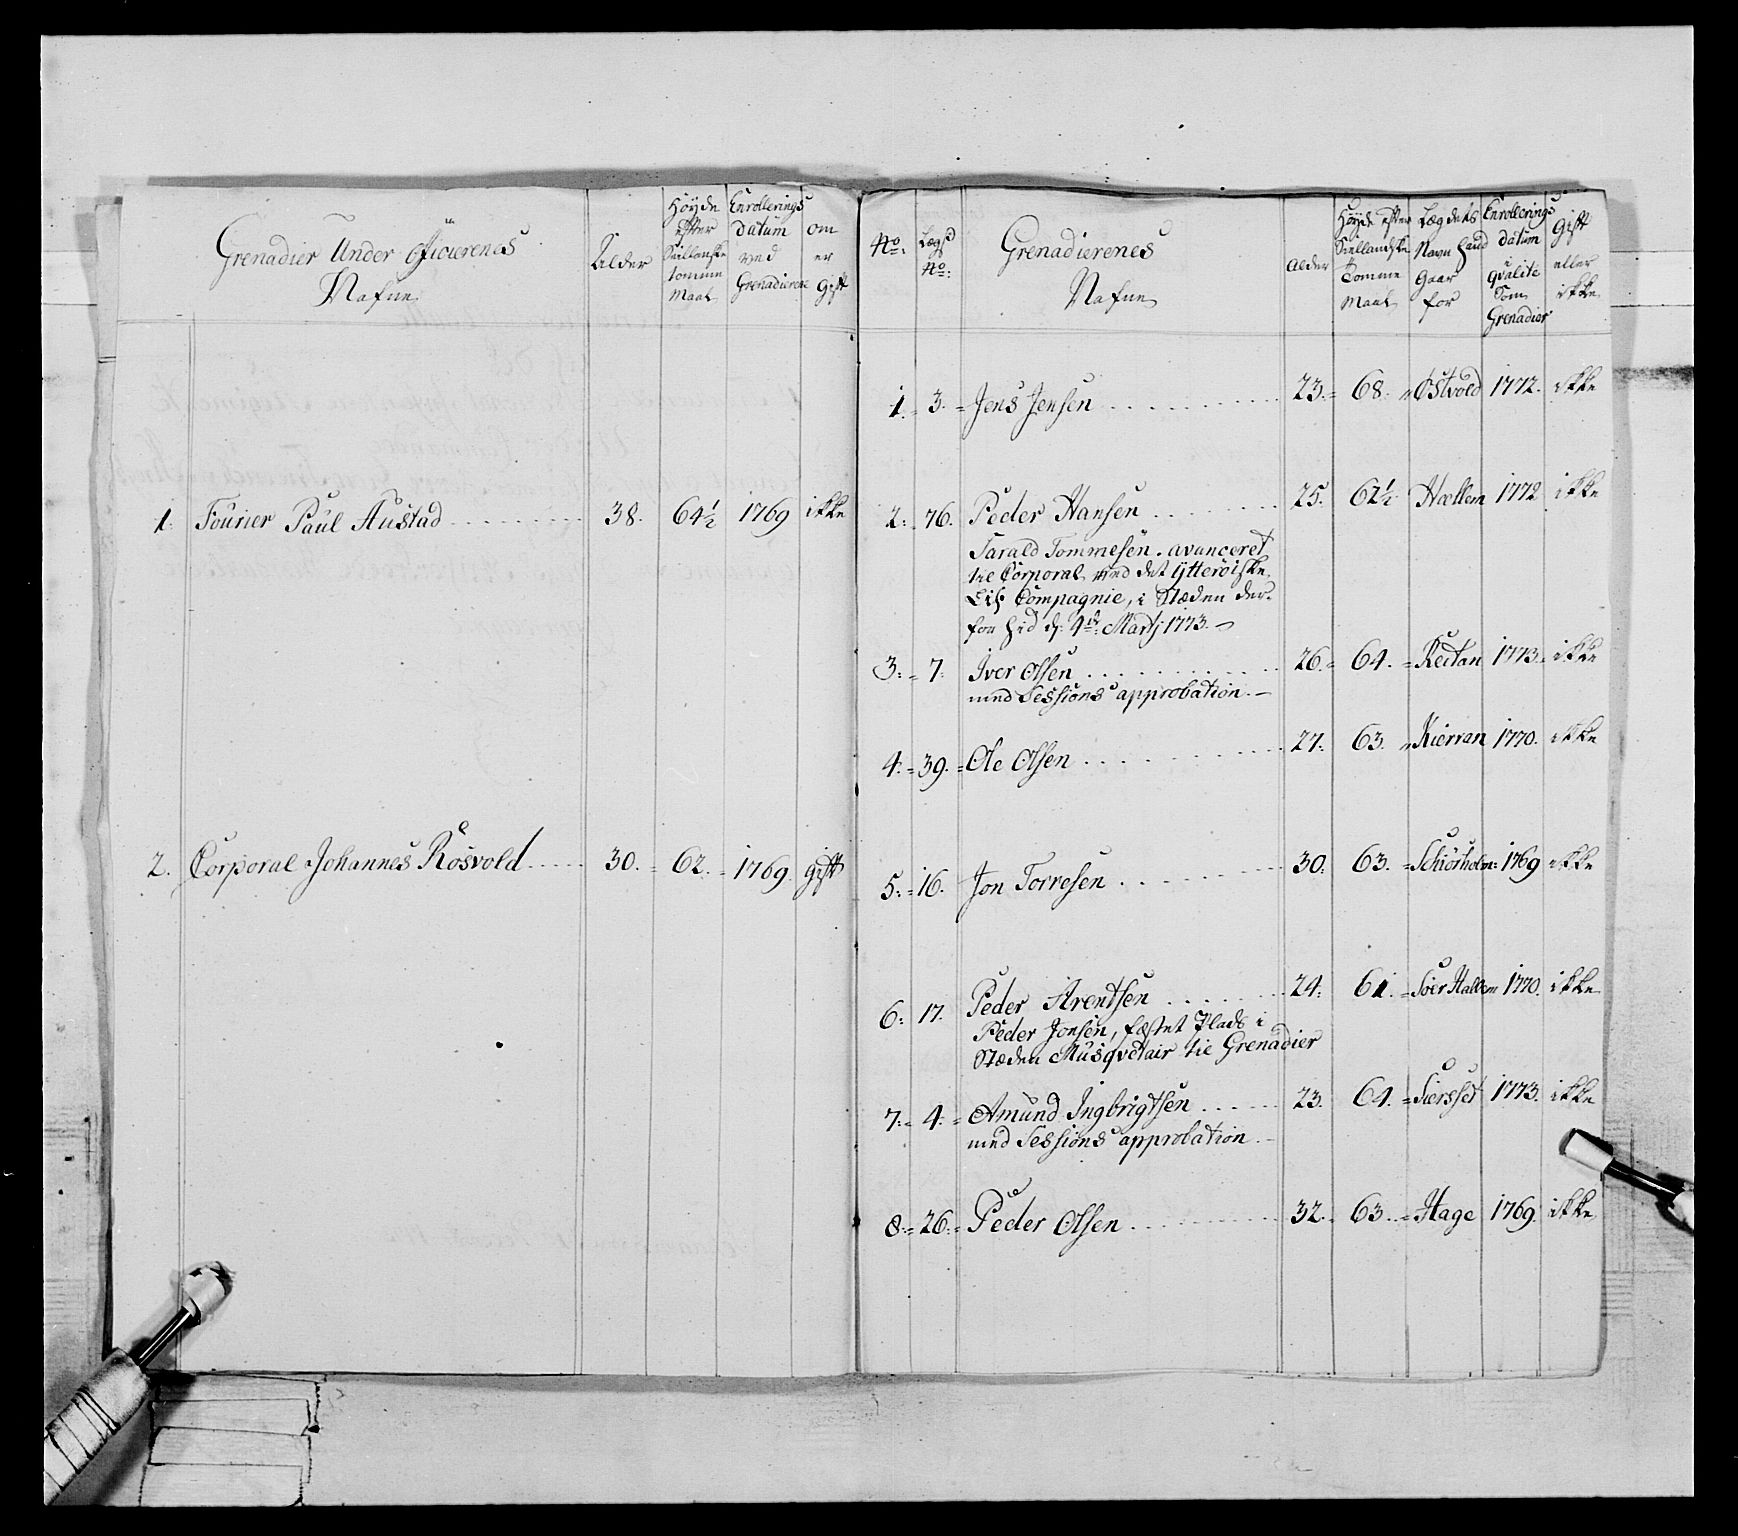 Grenadier Under Officierenes
Nafne
Alder
Höyde
efter
Siellanske
tomme
Maal
Enrollerings
datum
ved
Grenadierene
om
er
Gift
1. Fourier Paul Austad 38. 64½ 1769 ikke
2. Corporal Johannes Rosvold 30. 62. 1769. gift
No:
Lægd
No:
Grenadierenes
Nafne
Alder
Höyde efter
Siellandske
Tomme
Maal
Lægdets
Navn hand
Gaar
for
Enrollerings
datum
i
qvalité
Som
Grenadier
Gift
eller
ikke
1. 3. Jens Jensen 23. 68. Østvold 1772. ikke
2. 76. Peder Hansen 25. 62½ Hællem 1772 ikke
Tarald Tommesen avanceret
til Corporal ved det Ytterøiske
Lif Compagnie, i Stæden der-
for hid d: 4de Martj 1773.
3. 7. Iver Olsen 26. 64. Rectan 1773. ikke
med Sessions approbation.
4. 39. Ole Olsen 27. 63. Kierran 1770. ikke
5. 16. Jon Torresen 30. 63. Schiörholm 1769 ikke
6. 17. Peder Arentsen 24. 61. Söer Hallem 1770. ikke
Peder Jonsen, fæstet Plads i
Stæden Musqvetair til Grenadier
7. 4. Amund Ingbrigtsen 23. 64. Siersset 1773. ikke
med Sessions approbation.
8. 26. Peder Olsen 32. 63. Hage 1769. ikke